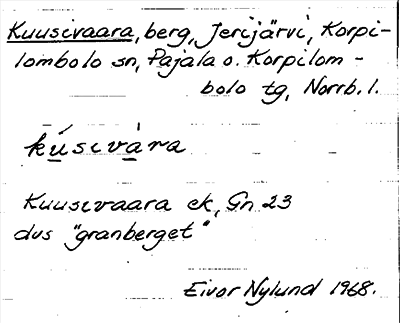 Kuusivaara, berg, Jerijärvi, Korpi-
lombolo sn, Pajala o. Korpilom-
bolo tg, Norrb. l.
kúsivàra
Kuusivaara ek, Gn 23
dvs "granberget"
Eivor Nylund 1968.